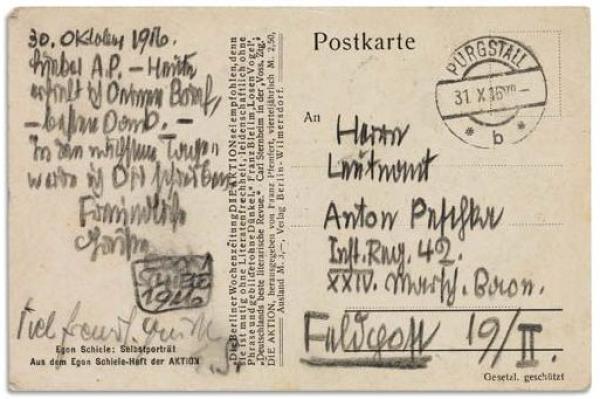 30. Oktober 1916.
Lieber A.P. – Heute
erhielt ich Deinen Brief,
– besten Dank. –
In den nächsten Tagen
werde ich Dir schreiben
Freundliche
Grüße
1916
Egon Schiele: Selbstporträt
Aus dem Egon Schiele-Heft der AKTION
Die Berliner Wochenzeitung DIE AKTION sei empfohlen, denn
sie ist mutig ohne Literatenfrechheit, leidenschaftlich ohne
Phrase und gebildet ohne Dünkel." Franz Blei im „Losen Vogel".
„Deutschlands beste literarische Revue." Carl Sternheim in der „Voss. Ztg."
DIE AKTION, herausgegeben von Franz Pfemfert, vierteljährlich M. 2,50,
Ausland M. 3,–, Verlag Berlin-Wilmersdorf.
Postkarte
PURGSTALL
31 X 16
* b *
An
Herrn
Leutnant
Anton Peschka
Inft. Reg. 42.
XXIV. Marsch. Baon.
Feldpost 19/II.
Gesetzl. geschützt